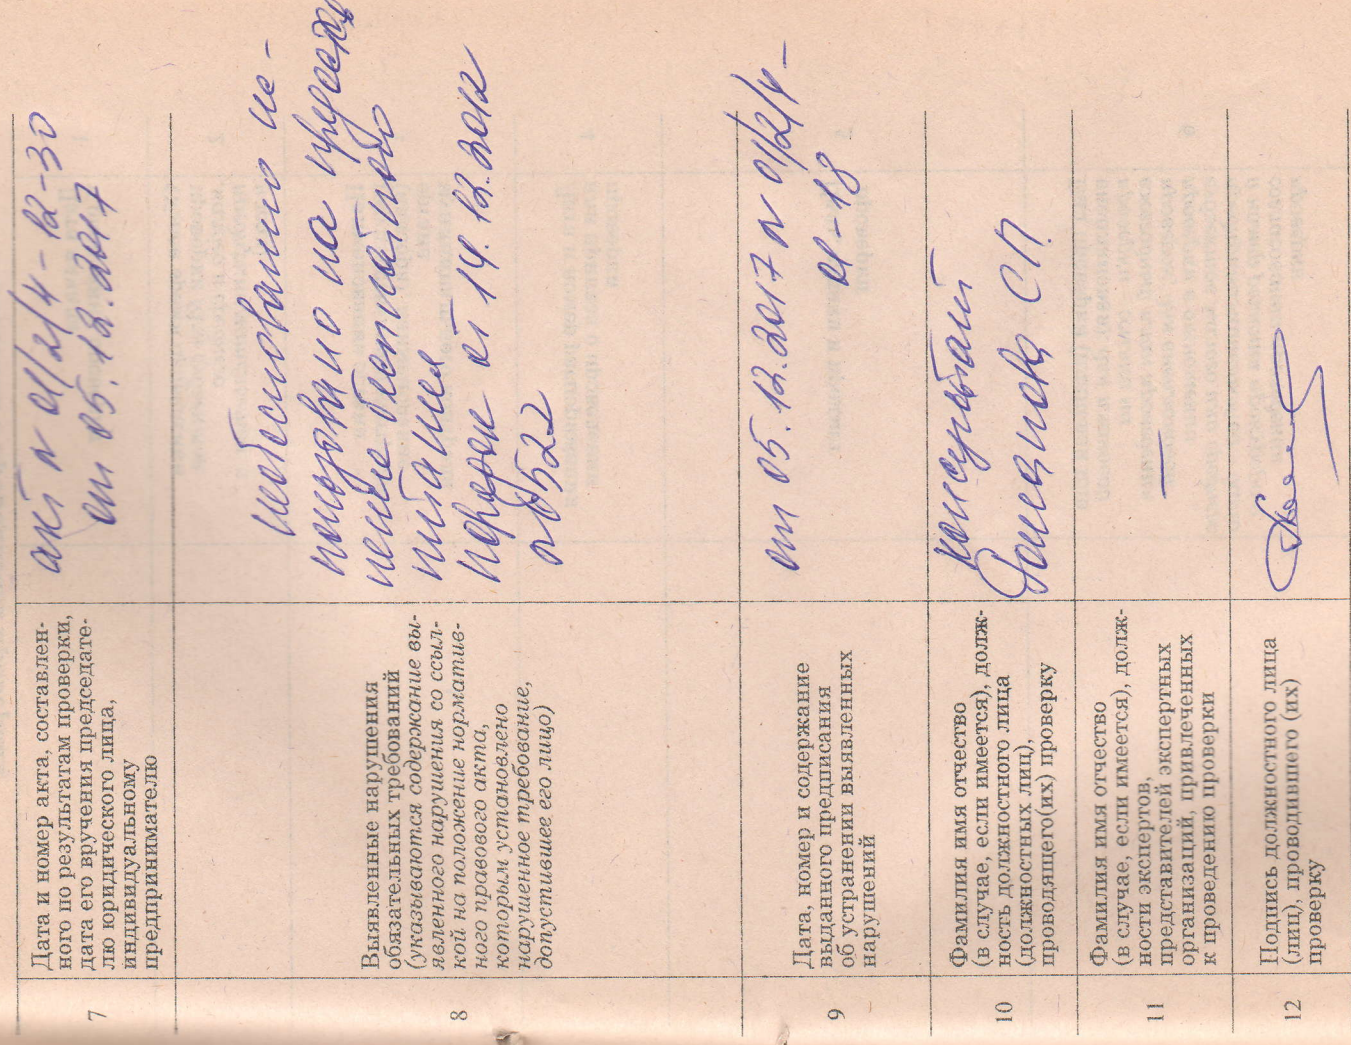 7
Дата и номер акта, составлен-
ного по результатам проверки,
дата его вручения председате-
лю юридического лица,
индивидуальному
предпринимателю
акт № 01/2/4-12-30
от 05.12.2017
8
Выявленные нарушения
обязательных требований
(указываются содержание вы-
явленного нарушения со ссыл-
кой на положение норматив-
ного правового акта,
которым установлено
нарушенное требование,
допустившее его лицо)
необосновано не-
на
бесплатного
питания
от 14.12.2012
№ 522
9
Дата, номер и содержание
выданного предписания
об устранении выявленных
нарушений
от 05.12.2017 № 01/2/4-
01-18
10
Фамилия имя отчество
(в случае, если имеется), долж-
ность должностного лица
(должностных лиц),
проводящего(их) проверку
консультант
С.П.
11
Фамилия имя отчество
(в случае, если имеется), долж-
ности экспертов,
представителей экспертных
организаций, привлеченных
к проведению проверки
—
12
Подпись должностного лица
(лиц), проводившего(их)
проверку